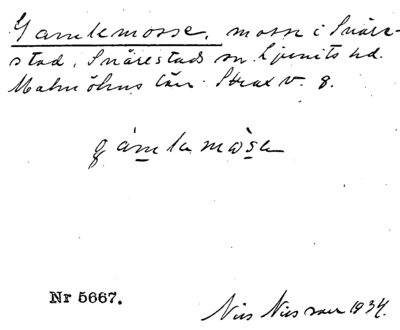 Gamlemosse, mosse i Snäre-
stad, Snärestads sn. Ljunits hd.
Malmöhus län. Strax v. 8.
gámlamosa
Nr 5667.
Nils Nilsson 1934.